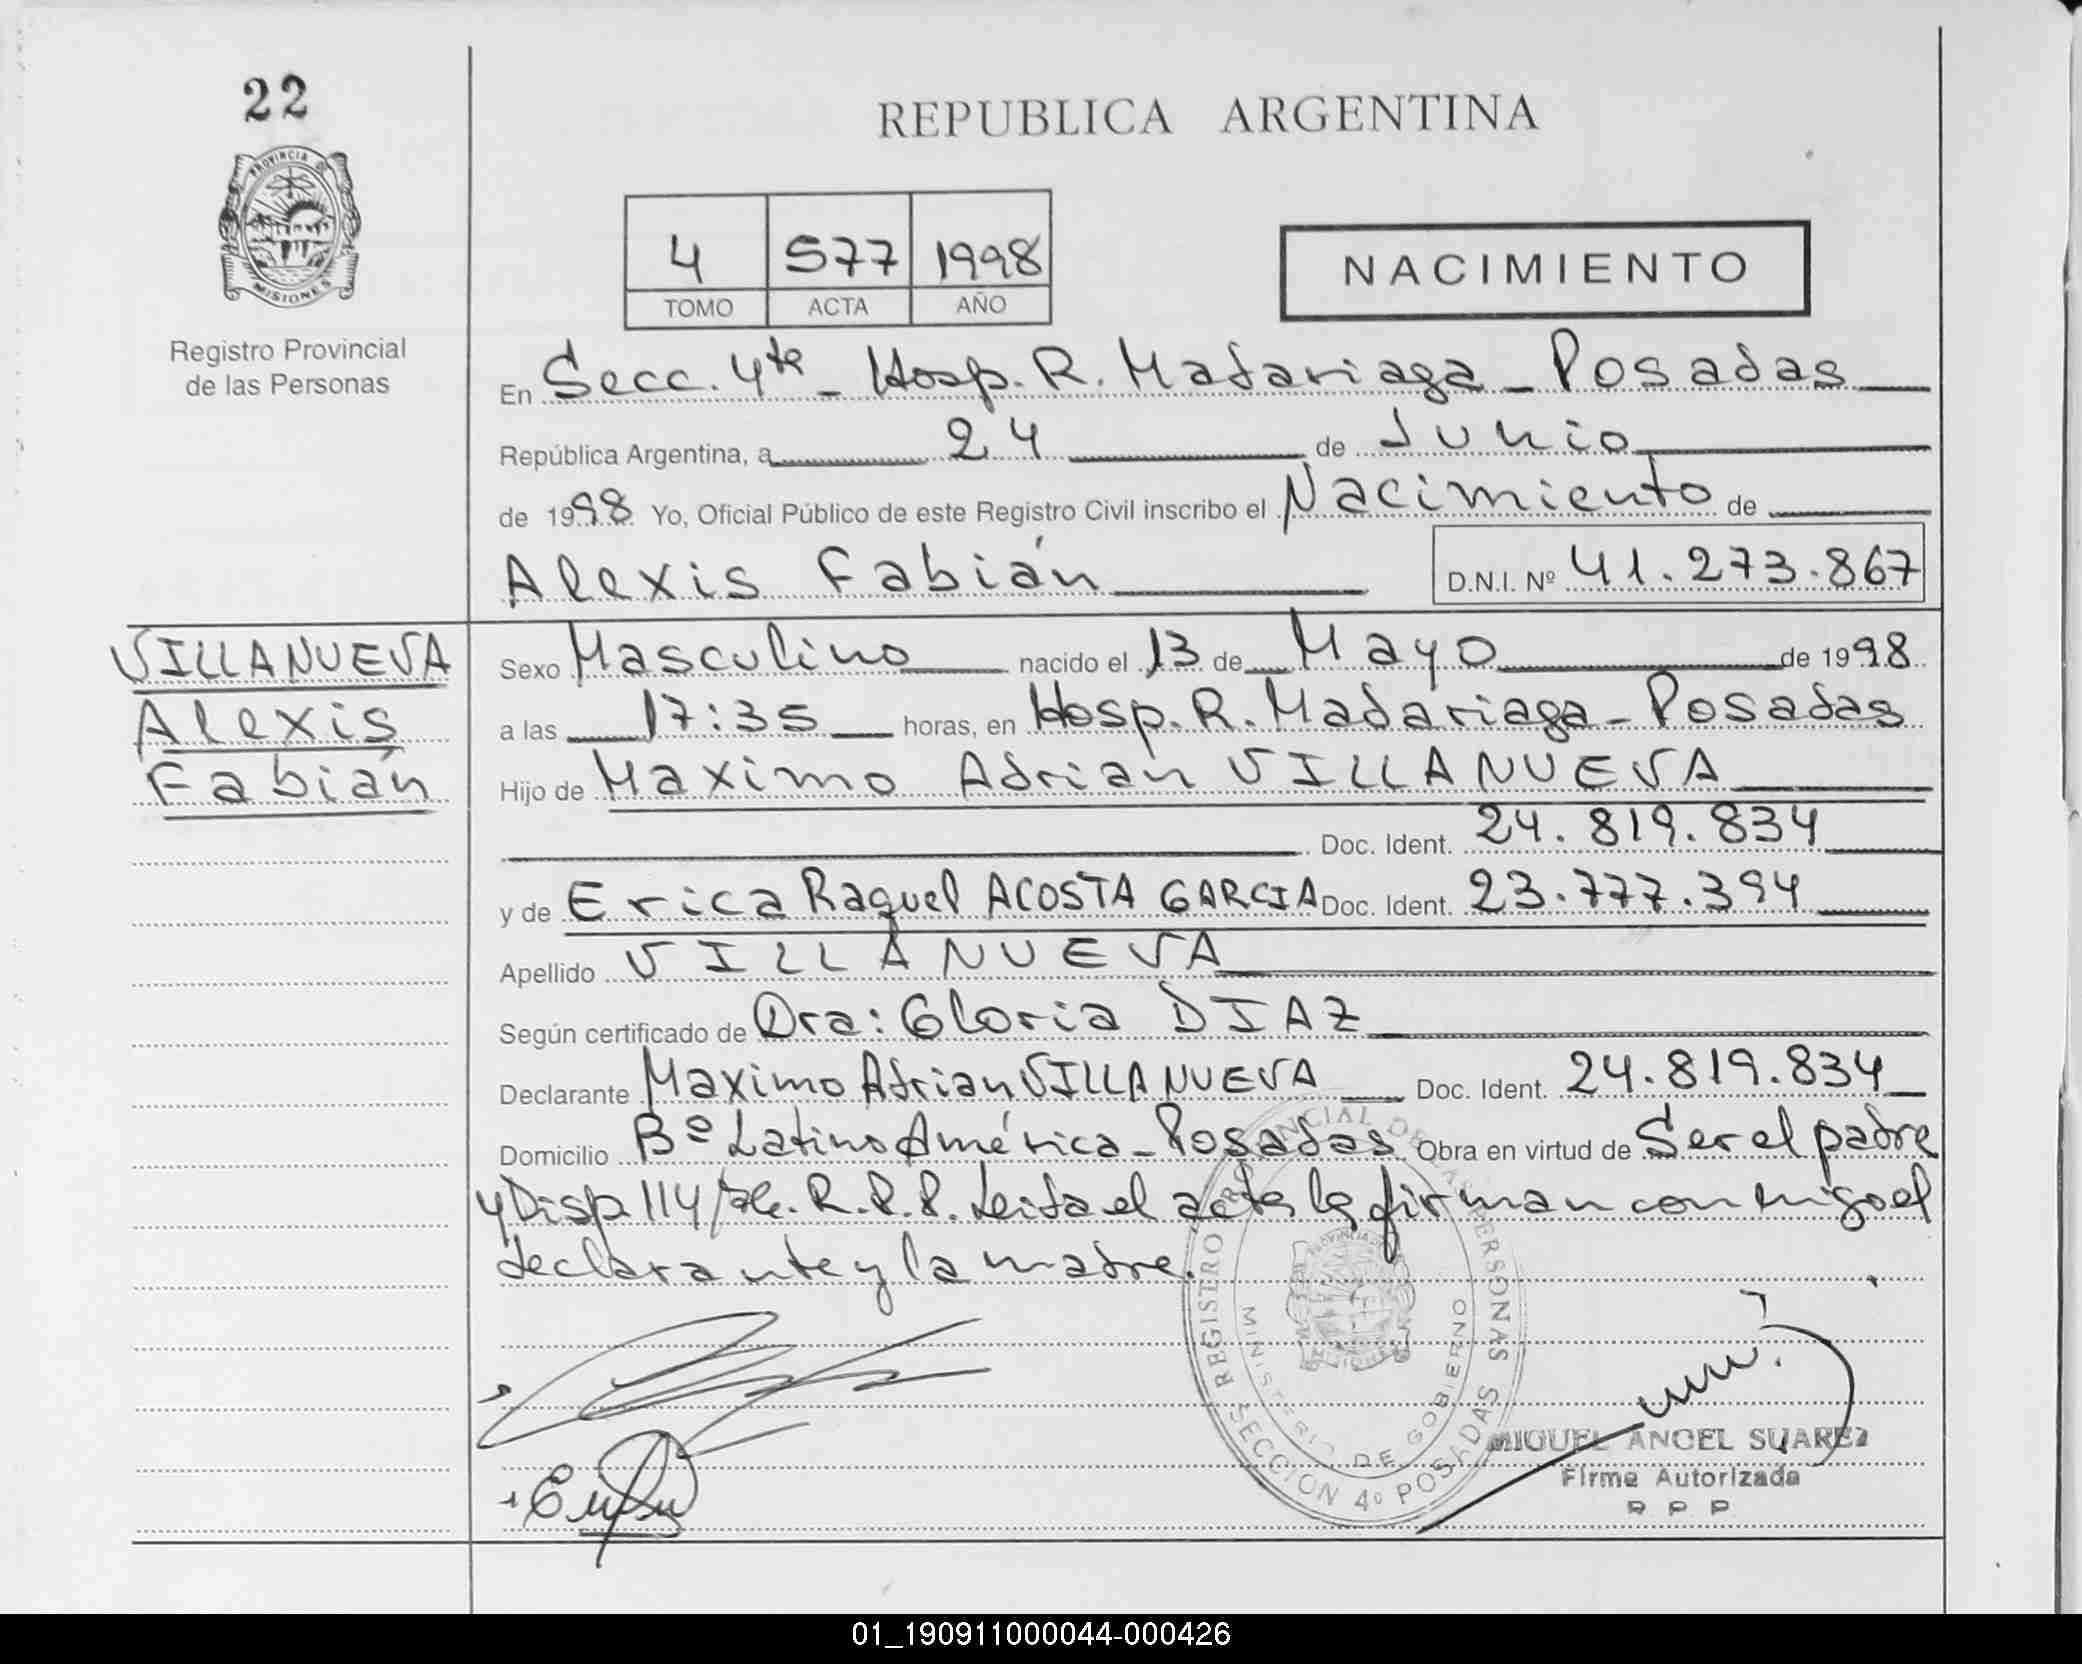 22
PROVINCIA DE
MISIONES
Registro Provincial
de las Personas
REPUBLICA ARGENTINA
4 577 1998
TOMO ACTA AÑO
NACIMIENTO
En Secc. 4ta - Hosp. R. Madariaga - Posadas
República Argentina, a 24 de Junio
de 1998 Yo, Oficial Público de este Registro Civil inscribo el Nacimiento de
Alexis Fabián D.N.I. Nº 41.273.867
VILLANUEVA
Alexis
Fabián
Sexo Masculino nacido el 13 de Mayo de 1998
a las 17:35 horas, en Hosp. R. Madariaga - Posadas
Hijo de Maximo Adrian VILLANUEVA
Doc. Ident. 24.819.834
y de Erica Raquel ACOSTA GARCIA Doc. Ident. 23.777.394
Apellido VILLANUEVA
Según certificado de Dra: Gloria DIAZ
Declarante Maximo Adrian VILLANUEVA Doc. Ident. 24.819.834
Domicilio Bº Latino América - Posadas Obra en virtud de Ser el padre
y Disp. 114/ R.P.P. Leida el acta la firman conmigo el
declarante y la madre.
REGISTRO PROVINCIAL DE LAS PERSONAS
MINISTERIO DE GOBIERNO
SECCION 4º POSADAS
MIGUEL ANGEL SUAREZ
Firma Autorizada
R P P
01_190911000044-000426